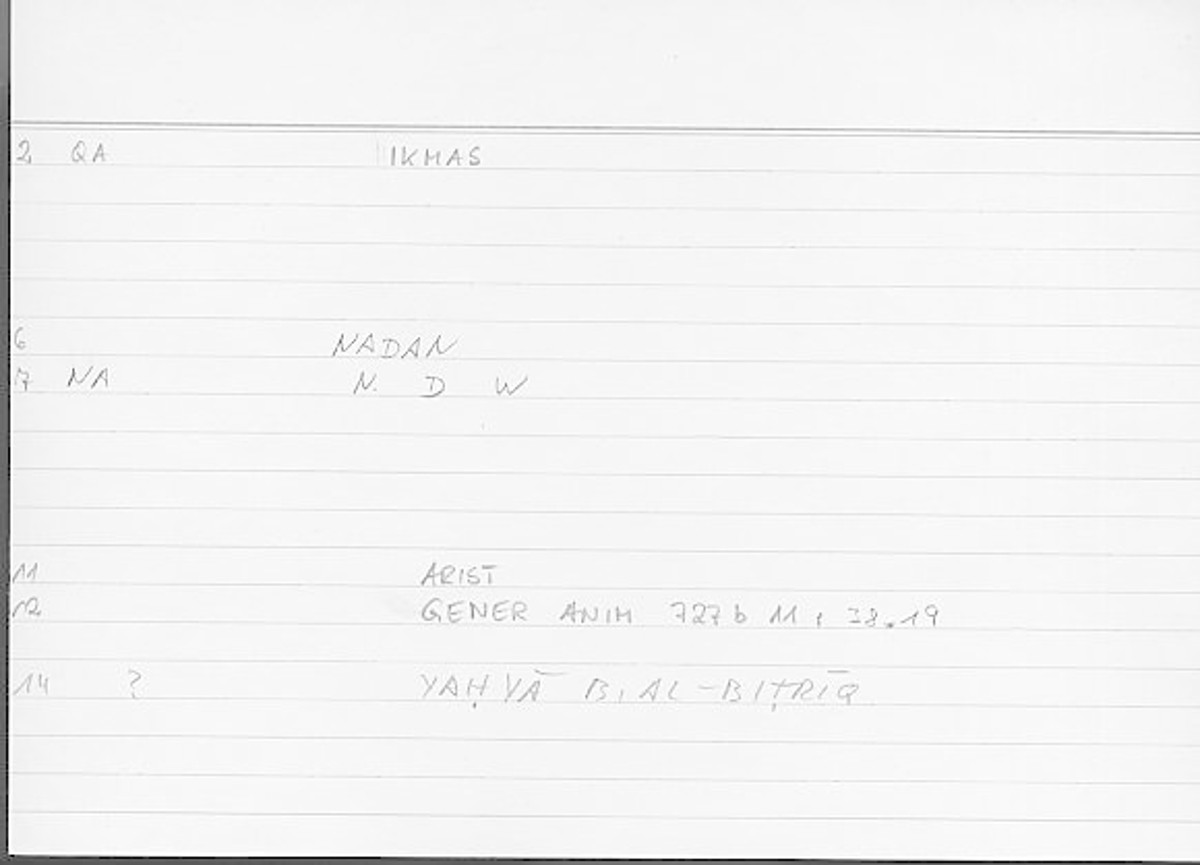 2 QA IKMAS
6 NADAN
7 NA N. D W
11 ARIST
12 GENER ANIM 727 b 11 ; 38.19
14 ? YAḤYĀ B. AL-BIṬRĪQ